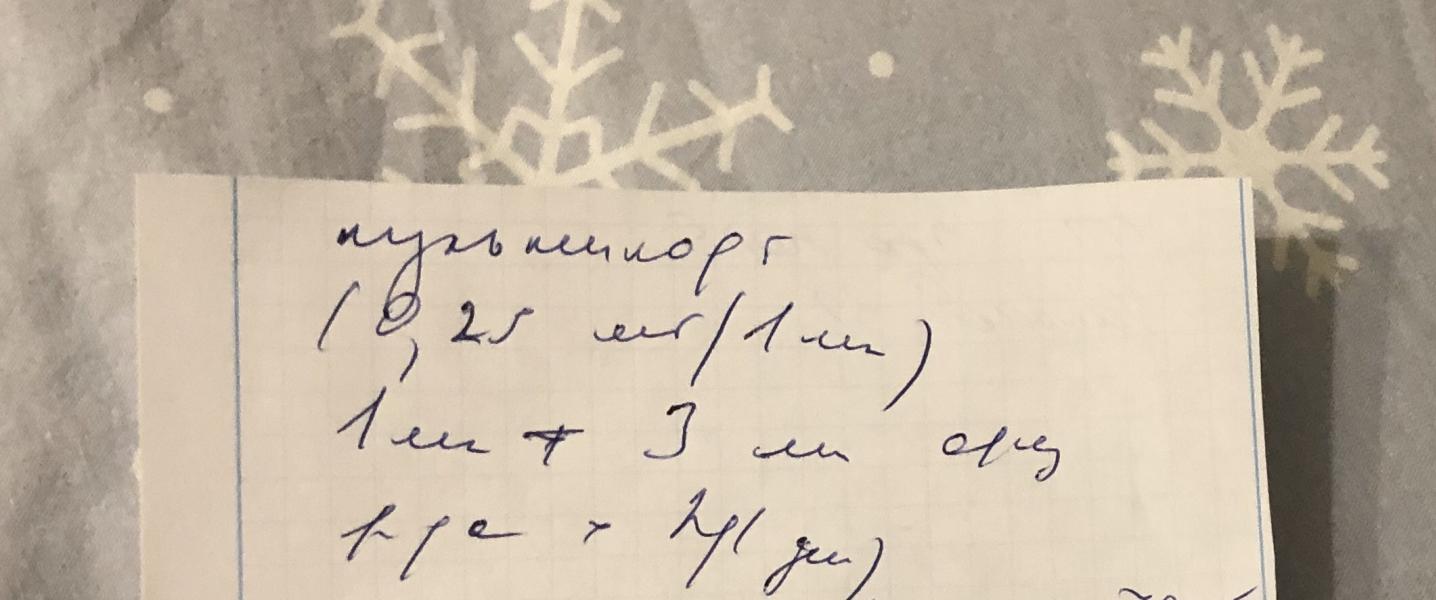 пульмикорт
(0,25 мг/1 мл)
1 мл + 3 мл физ
р-ра х 2р/дн)